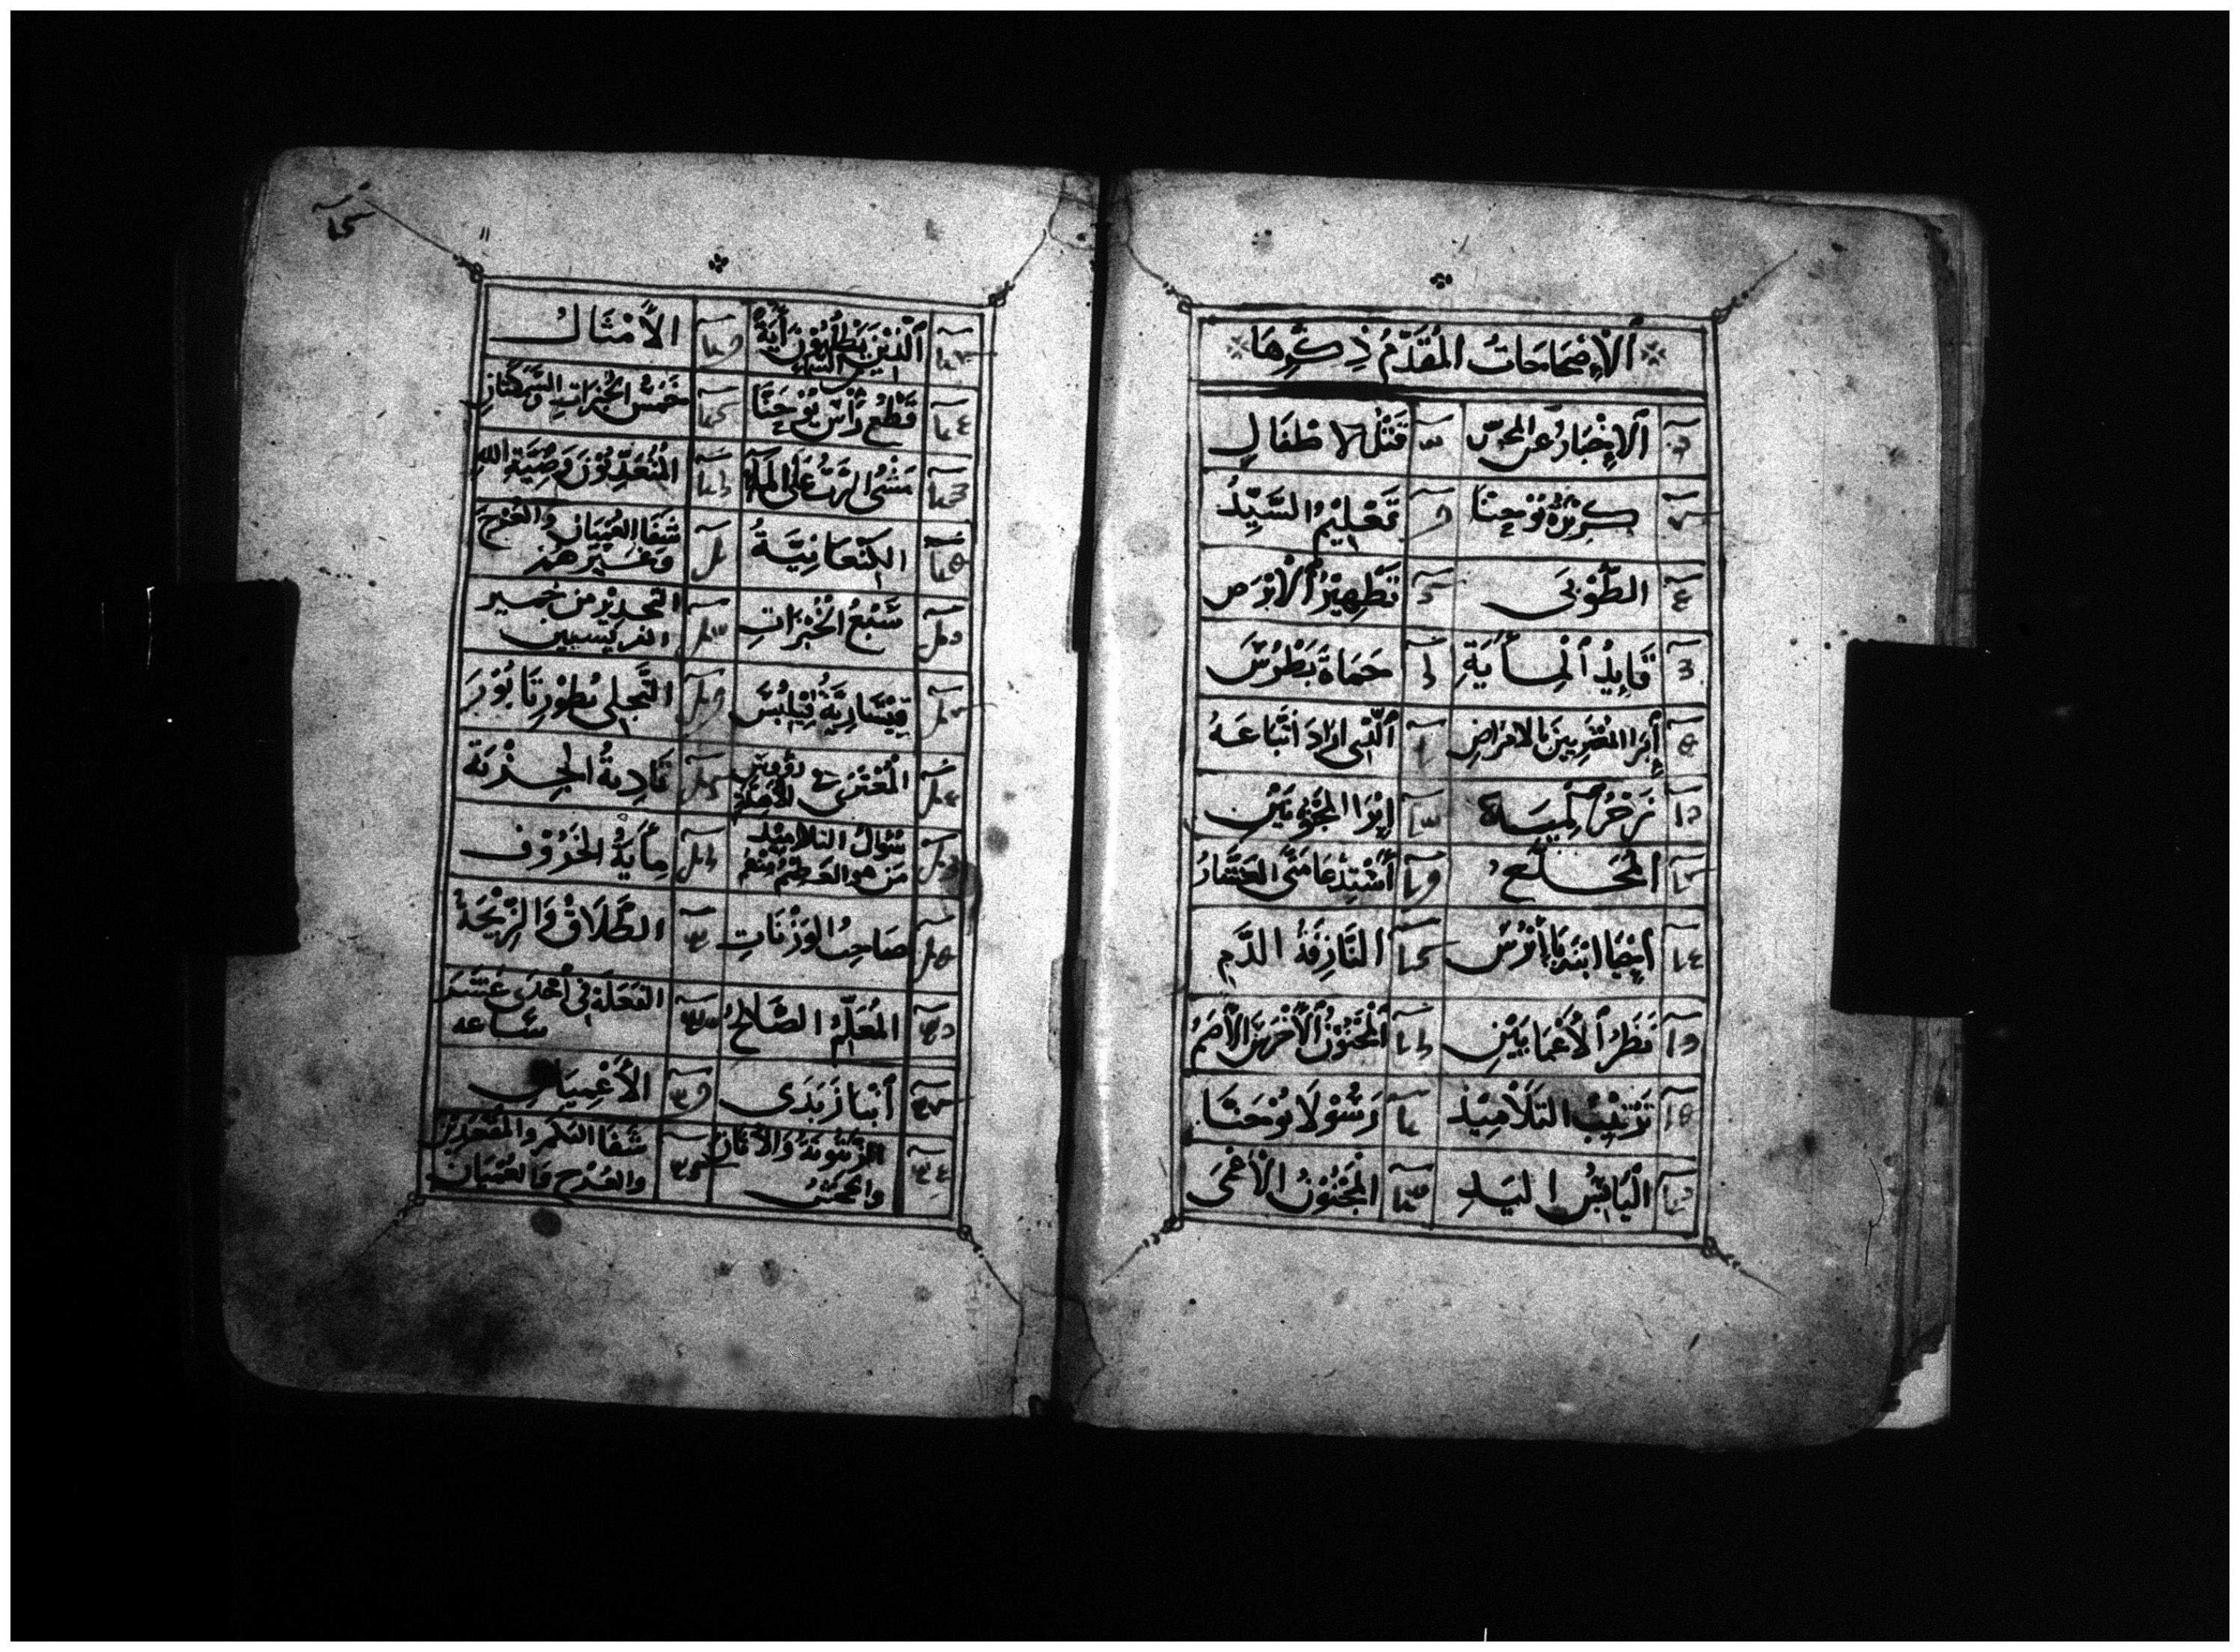 ٱلْإِصْحَاحَاتُ ٱلْمُقَدَّمُ ذِكْرُهَا
ٱلْإِخْبَارُ عَنِ المَجُوسِ قَتْلُ الاطْفَالِ
كِرْزَةُ يُوحَنَّا تَعْلِيْمُ السَّيِّدُ
الطُّوْبَى تَطْهِيْرُ ٱلْأَبْرَصِ
قَايِدُ ٱلْمِأَيَةِ حَمَاةَ بَطْرُسَ
إِبْرَا المُعْتَرِيينَ بالامراضِ ٱلَّذِى اراد اتِّبَاعَهُ
زَجْرُ المِيَاه إِبْرَا المَجْنُونَيْنِ
المُخَلَّعِ أَسْتِدْعَا مَتَّى العَشَّارُ
أَحْيَا ابْنَة يَاإِيْرُسَ النَّازِفَةُ الدَّمِ
نَظَرُ ٱلْأَعْمَايَيْنِ ٱلْمَجْنُونُ ٱلْأَخْرَسُ الْأَصَمُّ
تَرْتِيْبُ التَلَامِيْذِ رَسُوْلَا يُوْحَنَّا
الْيَابِسُ اليَدِ المَجْنُوْنُ الْأَعْمَى
ٱلَّذِيْنَ يَطْلُبُوْنَ أَيَةً الأَمْثَالُ
مِنَ السَّمَاءِ
قَطْعُ رَأْسِ يُوْحَنَّا خَمْسُ الخُبْزَاتِ والسَّمَكَتَانِ
مَشْىُ الرَّبِّ عَلَى المَآءِ المُتَعَدِّيُوْنَ وَصِيَّةِ اللهِ
الكَنْعَانِيَّةُ شَفَا العُمْيَانِ والعُرْجِ
وغَيْرِهُمْ
سَبْعُ الخُبْزَاتِ التحديْرِ من خمير
الفريسيين
قِيْسَارِيَّةُ فِيْلِبُّسَ التَّجلى بُطُوْرِ تَابُوْرَ
المُعْتَرِي فِي رُؤُوسِ الأَهِلَّةِ تَادِيةُ الجِزْيَةِ
سُوَالُ التلاميْدِ مِأْيَةُ الخَرُوْفِ
مَن هو العَظِيْمُ مِنْهُمْ
صَاحِبُ الوَزَنَاتِ الطَّلَاقُ وَالزِّيْجَةُ
المُعَلِّمُ الصَّالِحُ الفَعَلَةُ فِى أَحْدَى عَشَرَ
سَاعه
أَبْنَا زَبَدَى الأَعْمِيَانِ
الزيْتُونَةُ وَالأَتَانُ شَفَا البُكْمِ والمُقْعَدِيْن
والجَحْشُ والعُرْجِ وَالعُمْيَانِ